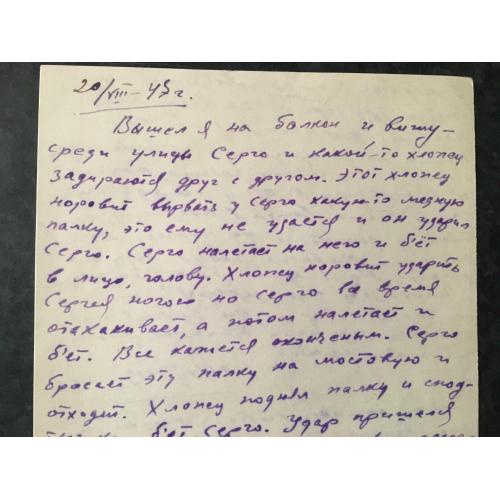 20/VIII-45г.
Вышел я на балкон и вижу-
среди улицы Серго и какой-то хлопец
задираются друг с другом. Этот хлопец
норовит вырвать у Серго какую-то медную
палку, это ему не удается и он ударил
Серго. Серго налетает на него и бьёт
в лицо, голову. Хлопец норовит ударить
Сергея ногою но Серго во время
отскакивает, а потом налетает и
бьёт. Все кажется оконченым. Серго
бросает эту палку на мостовую и
отходит. Хлопец поднял палку и
бьёт Серго. Удар пришелся